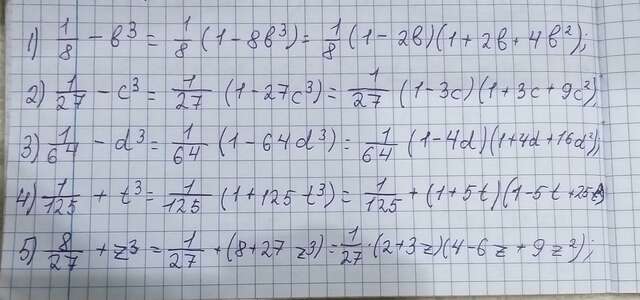 1) 1/8 - в³ = 1/8 (1 - 8в³) = 1/8 (1 - 2в)(1 + 2в + 4в²);
2) 1/27 - c³ = 1/27 (1 - 27c³) = 1/27 (1 - 3c)(1 + 3c + 9c²);
3) 1/64 - d³ = 1/64 (1 - 64d³) = 1/64 (1 - 4d)(1 + 4d + 16d²);
4) 1/125 + t³ = 1/125 (1 + 125t³) = 1/125 + (1 + 5t)(1 - 5t + 25t²)
5) 8/27 + z³ = 1/27 + (8 + 27z³) = 1/27 · (2 + 3z)(4 - 6z + 9z²);